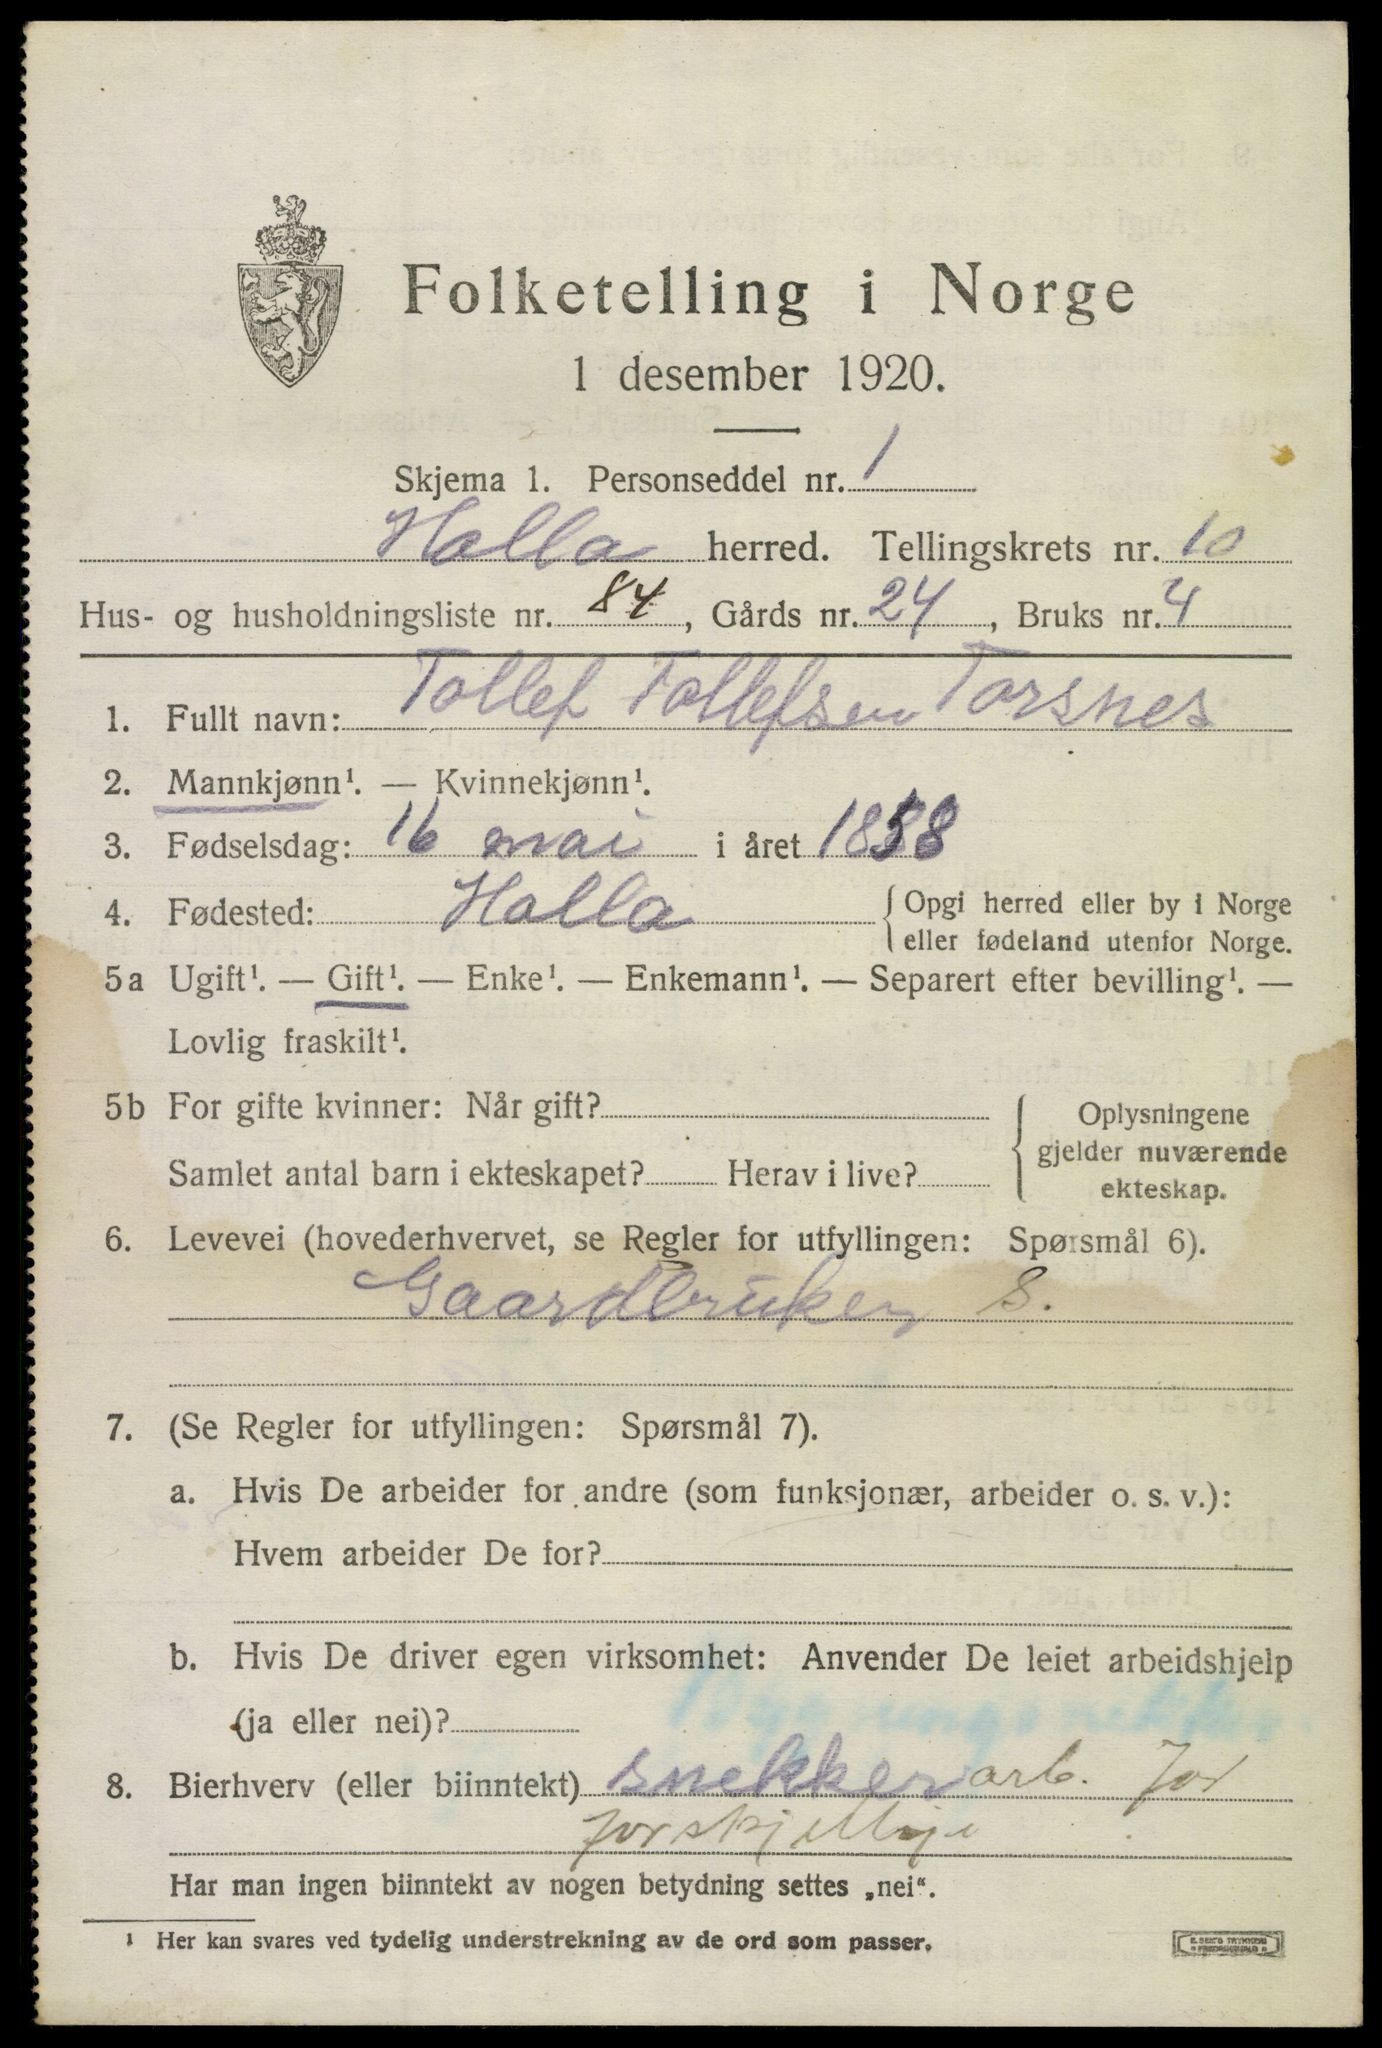 Folketelling i Norge
1 desember 1920.
Skjema 1. Personseddel nr. 1
Holla herred. Tellingskrets nr. 10
Hus- og husholdningsliste nr. 84, Gårds nr. 24, Bruks nr. 4
1. Fullt navn: Tollef Tollefsen Torsnes
2. Mannkjønn¹. — Kvinnekjønn¹.
3. Fødselsdag: 16 mai i året
4. Fødested: Holla { Opgi herred eller by i Norge
eller fødeland utenfor Norge.
5a Ugift¹. — Gift¹. — Enke¹. — Enkemann¹. — Separert efter bevilling¹. —
Lovlig fraskilt¹.
5b For gifte kvinner: Når gift? { Oplysningene
gjelder nuværende
Samlet antal barn i ekteskapet? Herav i live?
ekteskap.
6. Levevei (hovederhvervet, se Regler for utfyllingen: Spørsmål 6).
Gaardbruker S.
7. (Se Regler for utfyllingen: Spørsmål 7).
a. Hvis De arbeider for andre (som funksjonær, arbeider o. s. v.):
Hvem arbeider De for?
b. Hvis De driver egen virksomhet: Anvender De leiet arbeidshjelp
(ja eller nei)?
8. Bierhverv (eller biinntekt) snekker arb. for
forskjellige
Har man ingen biinntekt av nogen betydning settes „nei“.
¹ Her kan svares ved tydelig understrekning av de ord som passer.